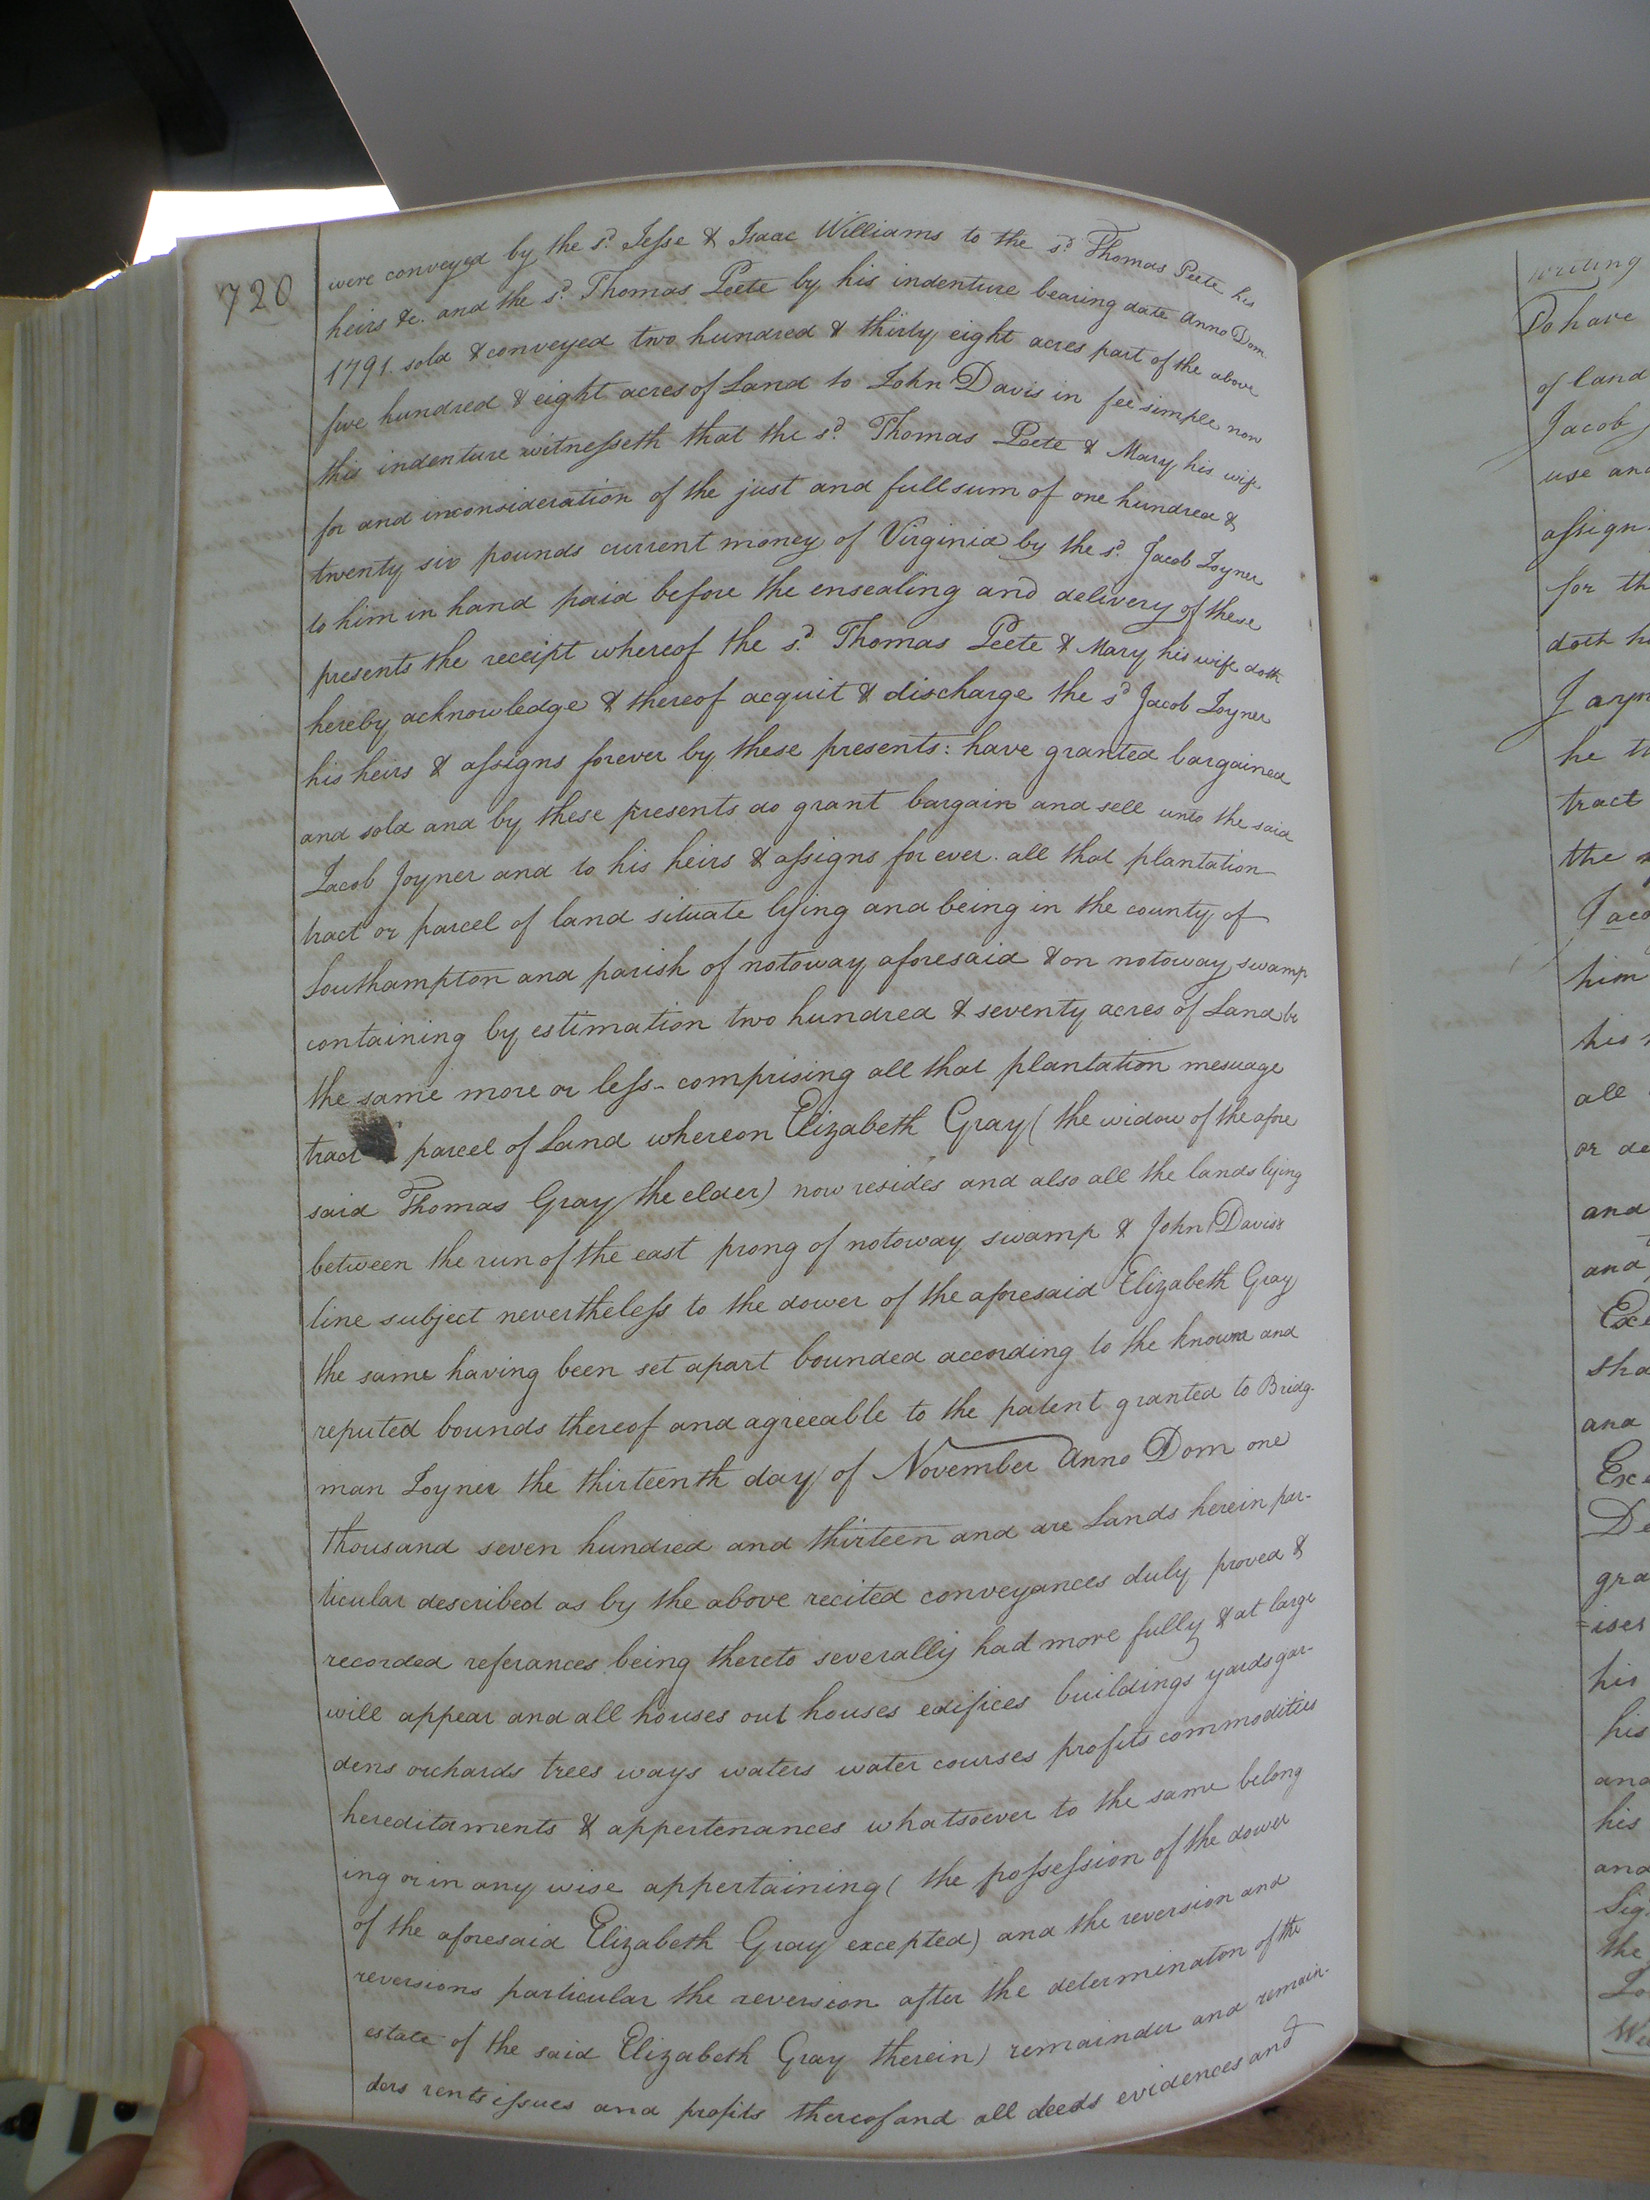 720
were conveyed by the sd. Jesse & Isaac Williams to the sd. Thomas Peete his
heirs &c. and the sd. Thomas Peete by his indenture bearing date Anno Dom
1791. sold & conveyed two hundred & thirty eight acres part of the above
five hundred & eight acres of Land to John Davis in fee simple now
this indenture witnesseth that the sd. Thomas Peete & Mary his wife
for and inconsideration of the just and full sum of one hundred &
twenty six pounds current money of Virginia by the sd. Jacob Joyner
to him in hand paid before the ensealing and delivery of these
presents the receipt whereof the sd. Thomas Peete & Mary his wife doth
hereby acknowledge & thereof acquit & discharge the sd Jacob Joyner
his heirs & assigns forever by these presents: have granted bargained
and sold and by these presents do grant bargain and sell unto the said
Jacob Joyner and to his heirs & assigns for ever. all that plantation
tract or parcel of land situate lying and being in the county of
Southampton and parish of notoway aforesaid & on notoway swamp
containing by estimation two hundred & seventy acres of Land be
the same more or less - comprising all that plantation mesuage
tract parcel of Land whereon Elizabeth Gray ( the widow of the afore
said Thomas Gray the elder) now resides and also all the lands lying
between the run of the east prong of notoway swamp & John Davis's
line subject nevertheless to the dower of the aforesaid Elizabeth Gray
the same having been set apart bounded according to the known and
reputed bounds thereof and agreeable to the patent granted to Bridg-
man Joyner the thirteenth day of November Anno Dom one
thousand seven hundred and thirteen and are Lands herein par-
ticular described as by the above recited conveyances duly proved &
recorded referances being thereto severally had more fully & at large
will appear and all houses out houses edifices buildings yards gar-
dens orchards trees ways waters water courses profits commodities
hereditaments & appertenances whatsoever to the same belong
ing or in any wise appertaining ( the possession of the dower
of the aforesaid Elizabeth Gray excepted) and the reversion and
reversions particular the reversion after the determinaton of the
estate of the said Elizabeth Gray therein) remainder and remain-
ders rents issues and profits thereof and all deeds evidences and
writing
To have
of land
Jacob
use and
assign
for th
doth h
he t
tract
the
him
his
all
or de
and
and
Exe
sha
and
Exe
De
gra
=ises
his
his
and
his
and
Sig
the